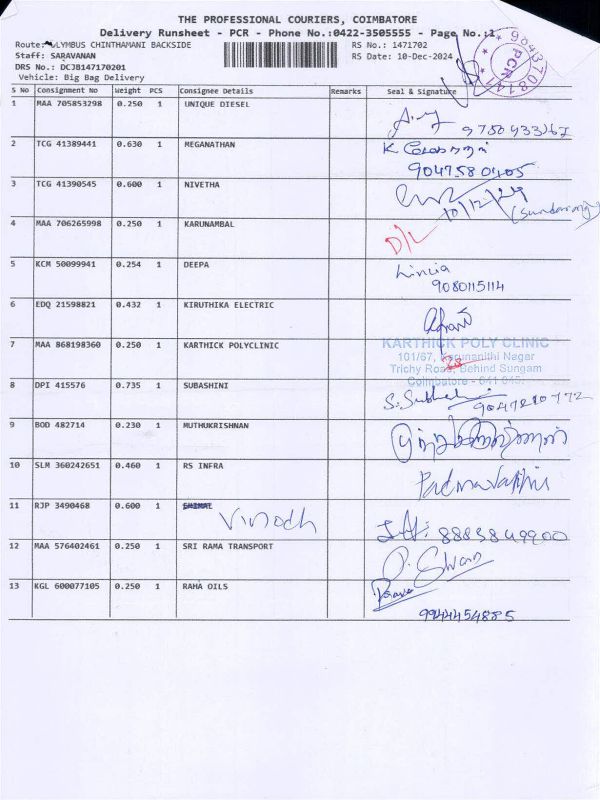 THE PROFESSIONAL COURIERS, COIMBATORE
Delivery Runsheet - PCR - Phone No.:0422-3505555 - Page No.:1
Route: OLYMBUS CHINTHAMANI BACKSIDE RS No.: 1471702
Staff: SARAVANAN RS Date: 10-Dec-2024
DRS No.: DCJB147170201
Vehicle: Big Bag Delivery
PCR
S No Consignment No Weight PCS Consignee Details Remarks Seal & Signature
1 MAA 705853298 0.250 1 UNIQUE DIESEL
2 TCG 41389441 0.630 1 MEGANATHAN K
3 TCG 41390545 0.600 1 NIVETHA 10/12/24
(Sundaram)
4 MAA 706265998 0.250 1 KARUNAMBAL D/L
5 KCM 50099941 0.254 1 DEEPA Lincia
9080115114
6 EDQ 21598821 0.432 1 KIRUTHIKA ELECTRIC
7 MAA 868198360 0.250 1 KARTHICK POLYCLINIC KARTHICK POLY CLINIC
101/67, Karunanithi Nagar
Trichy Road, Behind Sungam
Coimbatore - 641 045.
8 DPI 415576 0.735 1 SUBASHINI
9047210772
9 BOD 482714 0.230 1 MUTHUKRISHNAN
10 SLM 360242651 0.460 1 RS INFRA Padmavathi
11 RJP 3490468 0.600 1 Vinodh 8883849900
12 MAA 576402461 0.250 1 SRI RAMA TRANSPORT
13 KGL 600077105 0.250 1 RAHA OILS
9944454885